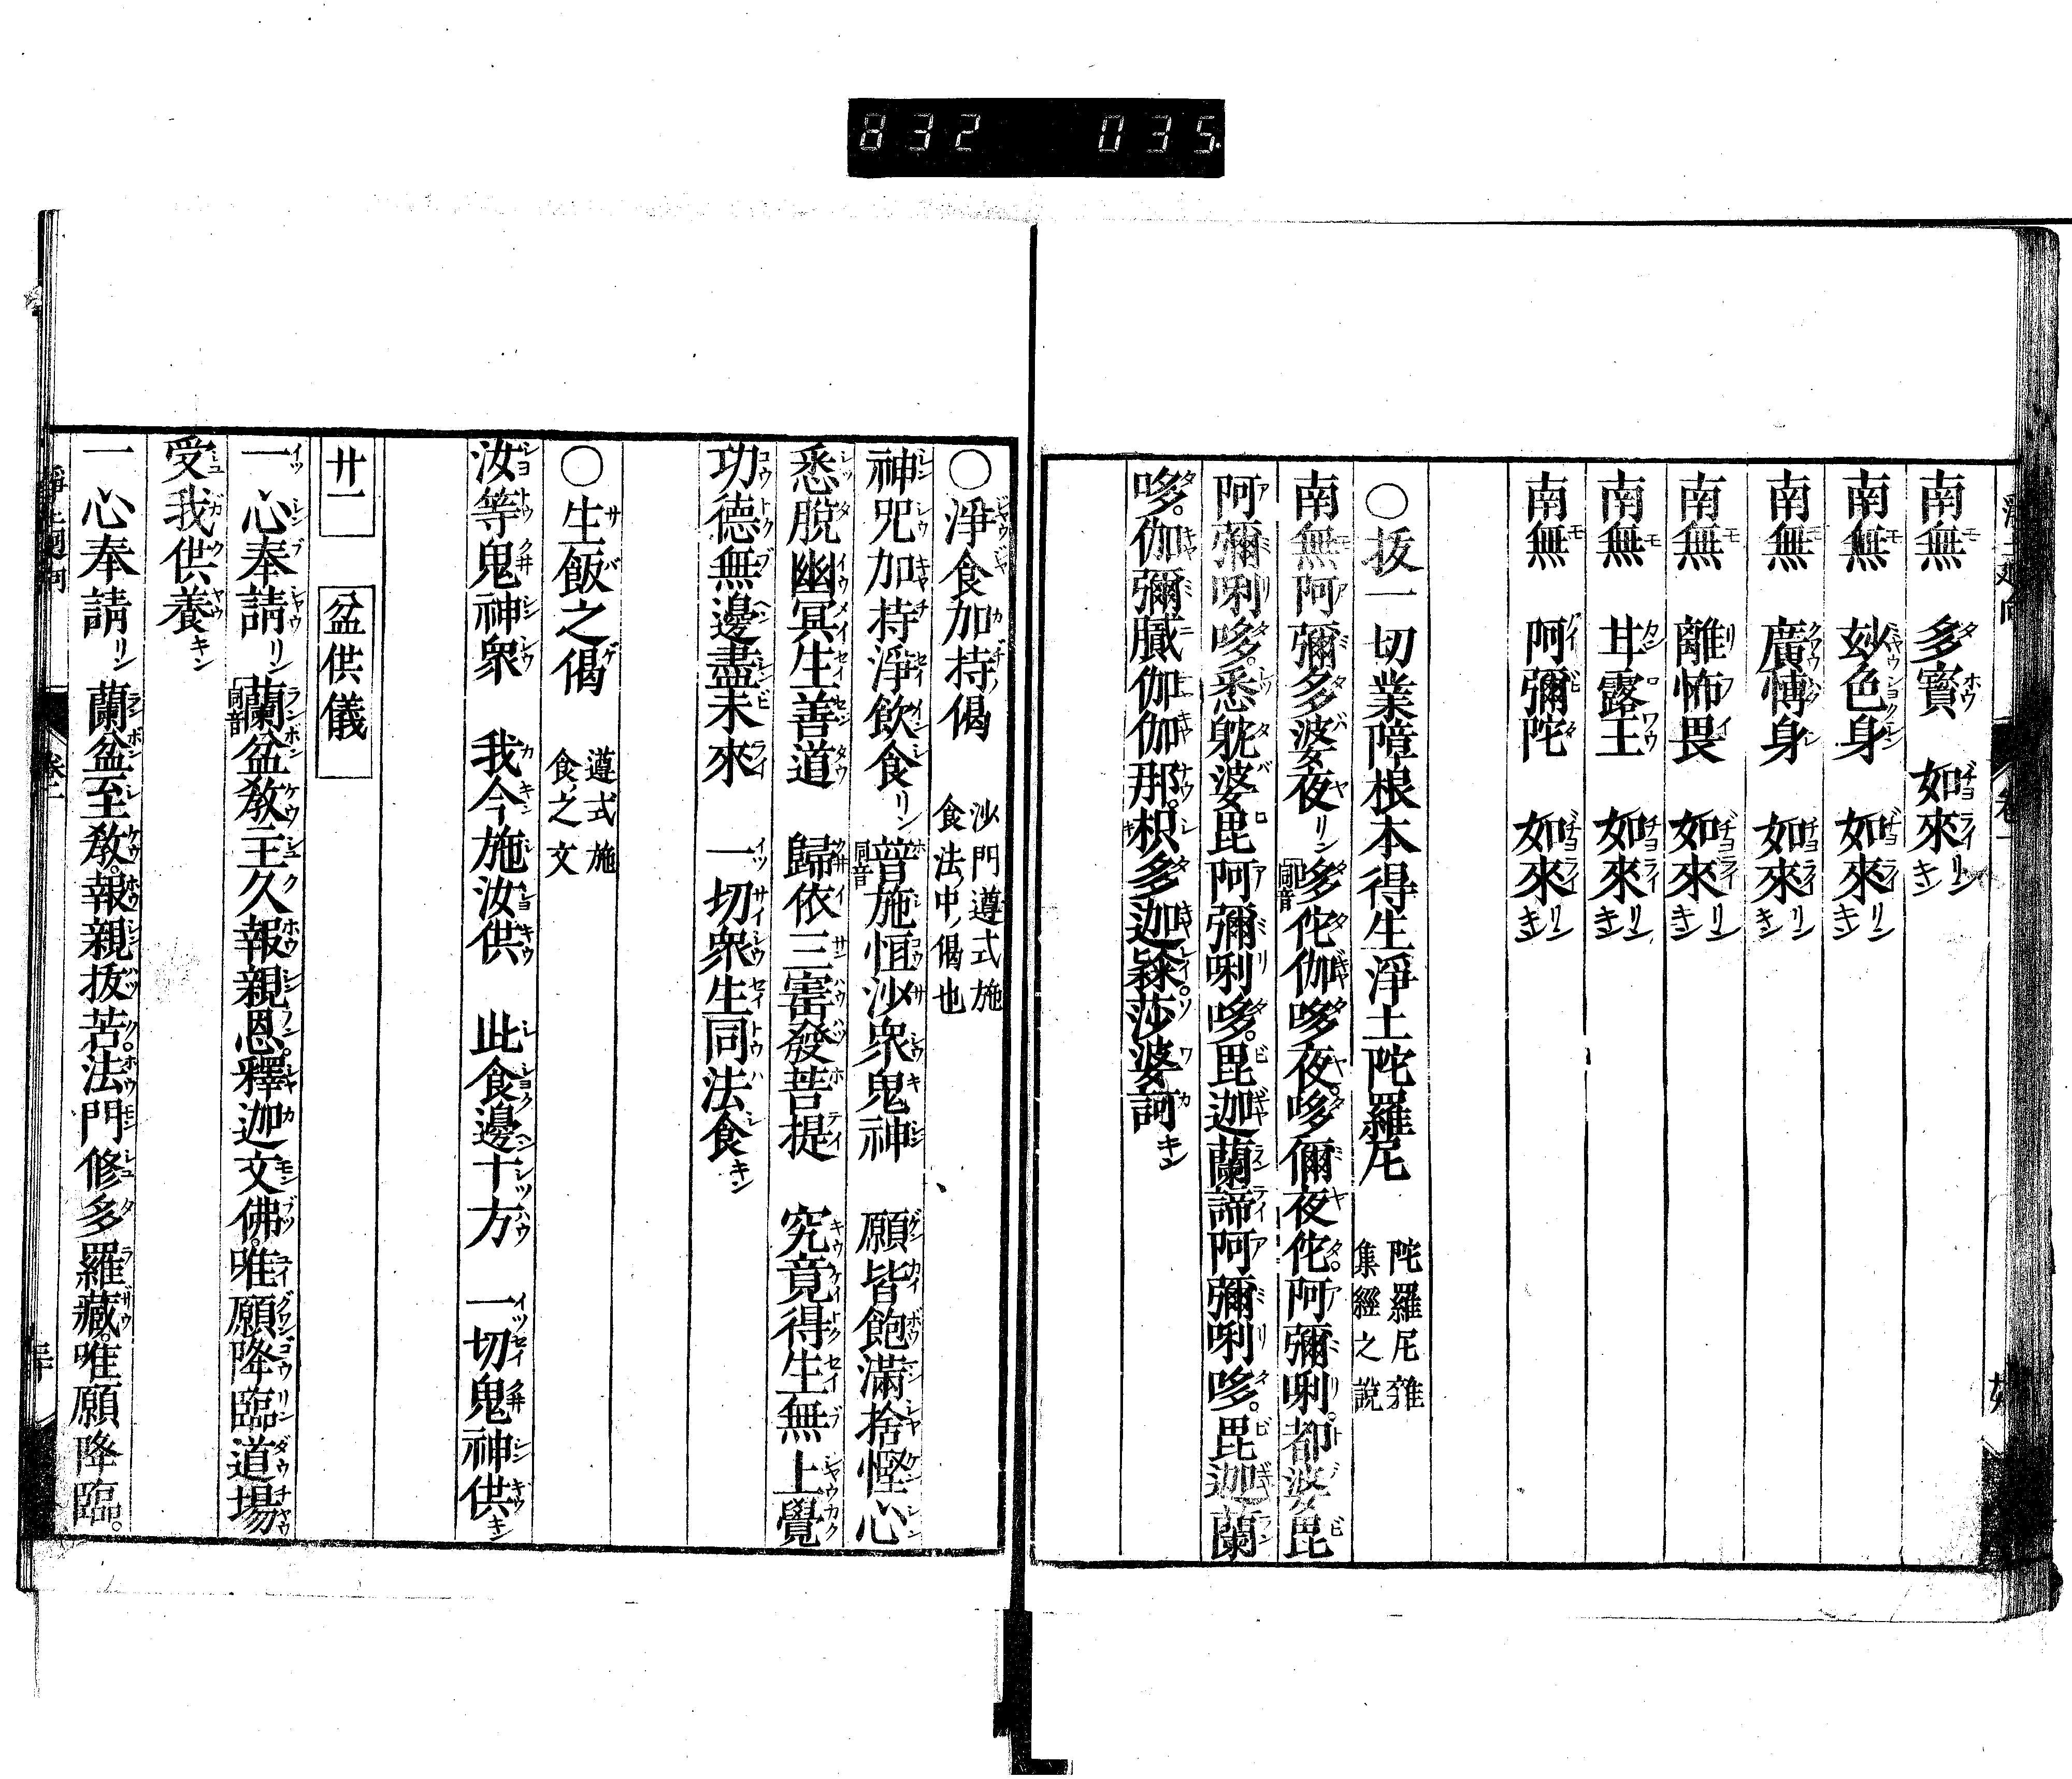 832 035
南無 多寳 如來
南無 妙色身 如來
南無 廣博身 如來
南無 離怖畏 如來
南無 甘露王 如來
南無 阿彌陀 如來
○拔一切業障根本得生淨土陀羅尼 陀羅尼雜集經之說
南無阿彌多婆夜リン哆佗伽哆夜。哆儞夜佗。阿彌唎。都婆毘
阿彌唎哆。悉躭婆毘阿彌唎哆。毘迦蘭諦阿彌唎哆。毘迦蘭
哆。伽彌膩伽伽那。枳多迦䋛。莎婆訶キン
○淨食加持偈 沙門遵式施食法ノ中ノ偈也
神咒加持淨飲食リン普施恒沙衆鬼神 願皆飽滿捨慳心
悉脫幽冥生善道 歸依三寚發菩提 究竟得生無上覺
功德無邊盡未來 一切衆生同法食キン
○生飯之偈 遵式施食之文
汝等鬼神衆 我今施汝供 此食遍十方 一切鬼神供キン
廿一 盆供儀
一心奉請リン蘭盆教主久報親恩。釋迦文佛。唯願降臨道場
受我供養キン
一心奉請リン蘭盆至教。報親拔苦。法門修多羅藏。唯願降臨。